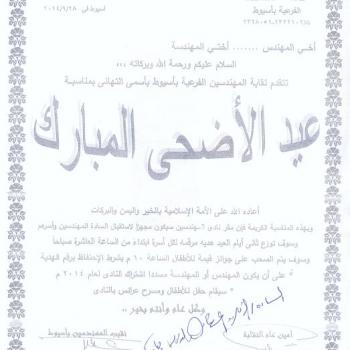 الفرعية بأسيوط
أسيوط في ٢٠١٤/٩/٢٨
أخي المهندس ....... أختي المهندسة
السلام عليكم ورحمة الله وبركاته ,,,
تتقدم نقابة المهندسين الفرعية بأسيوط بأسمى التهاني بمناسبة
عيد الأضحى المبارك
أعاده الله على الأمة الإسلامية بالخير واليمن والبركات
وبهذه المناسبة الكريمة فإن مقر نادي المهندسين سيكون مجهزا لاستقبال السادة المهندسين وأسرهم
وسوف توزع ثاني أيام العيد هديه مرقمه لكل أسرة ابتداءً من الساعة العاشرة صباحاً
وسوف يتم السحب على جوائز قيمة للأطفال الساعة ١٠ م بشرط الإحتفاظ برقم الهدية
* على أن يكون المهندس أو المهندسة مسددا اشتراك النادى لعام ٢٠١٤ م
* سيقام حفل للأطفال ومسرح عرائس بالنادى
وكل عام وأنتم بخير ..
أمين عام النقابة
نقيب المهندسين بأسيوط